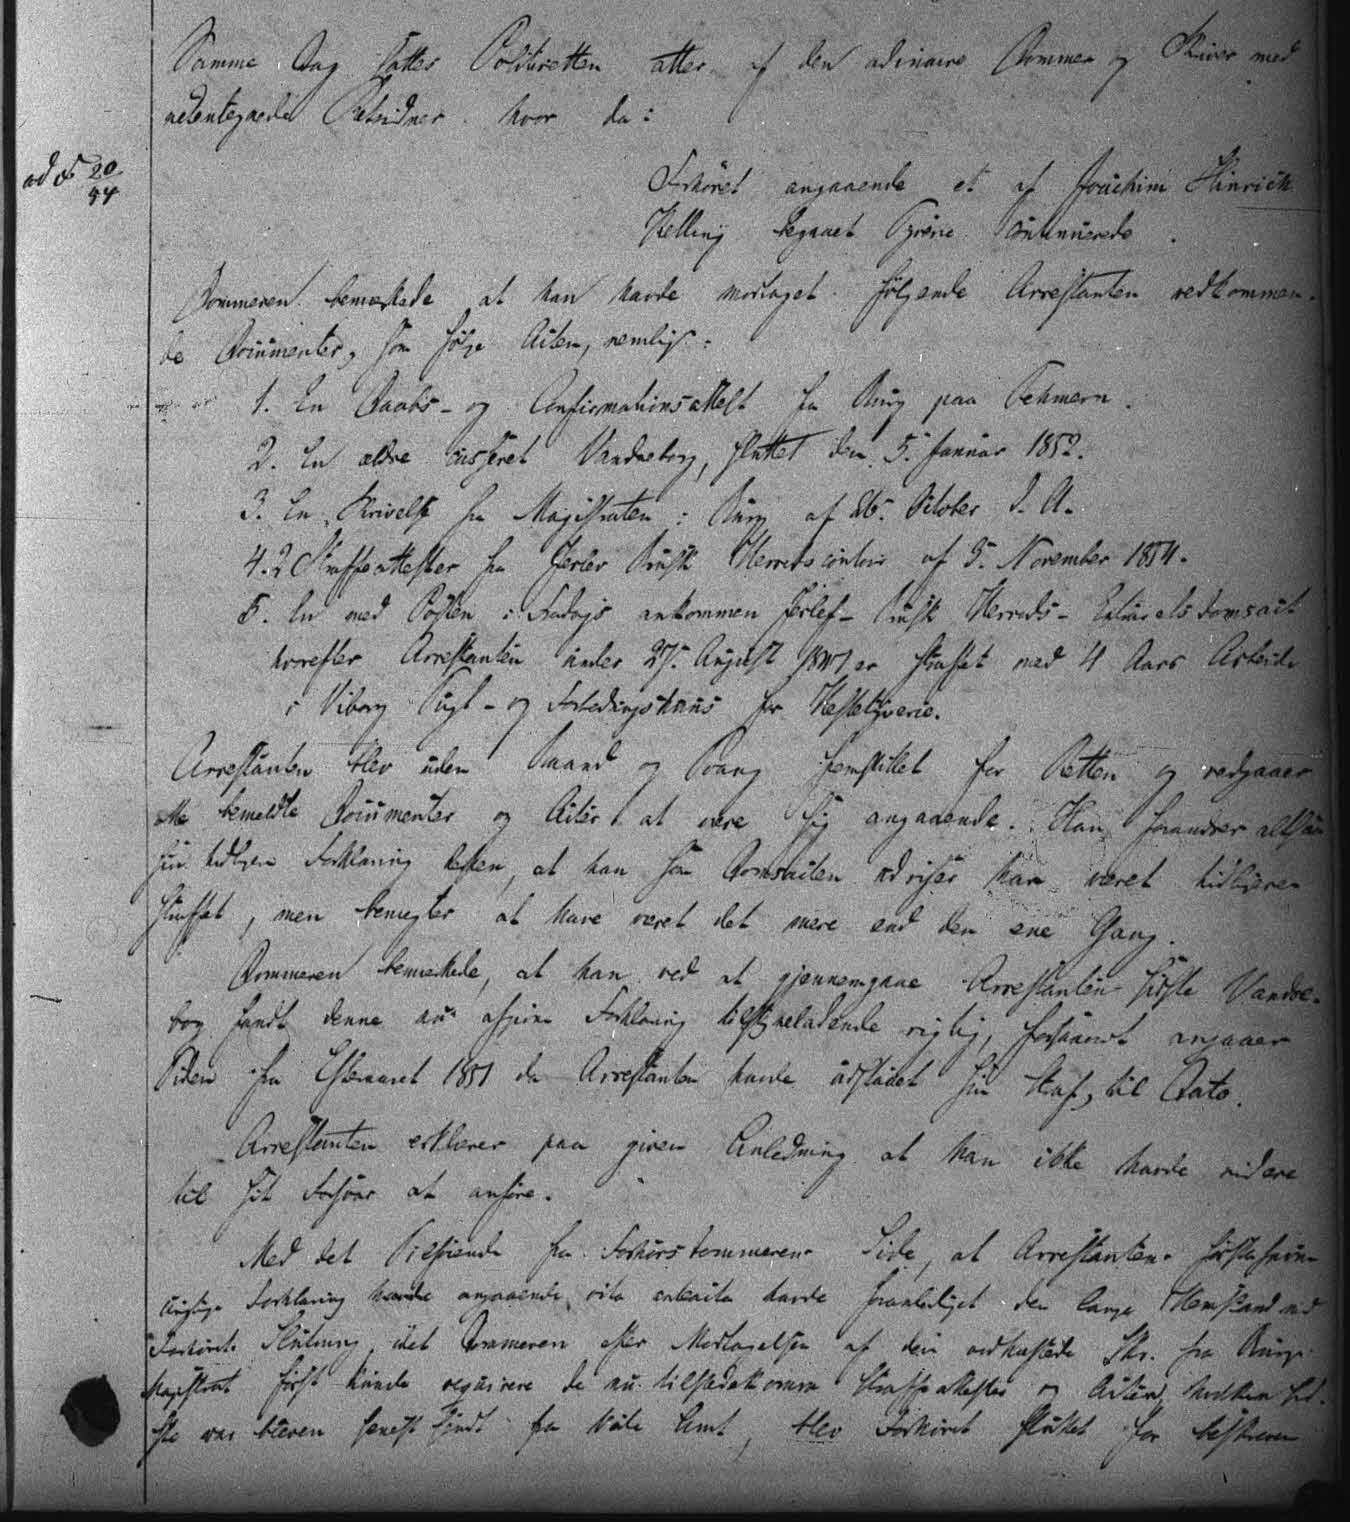 Samme Dag sattes Politiretten atter af den ordinaire Dommer og Skriver med
nedentegnede Retsvidner hvor da:
ad № 20/54
Forhöret angaaende et af Joachim Hinrich
Kelling begaaet Tyverie continuerede.
Dommeren bemærkede at han havde modtaget følgende Arrestanten vedkommen-
de Documenter, som følge Acten, nemlig:
1. En Daabs- og Confirmationsattest fra Burg paa Fehmarn.
2. En ældre casseret Vandrebog, sluttet den 5. Januar 1852.
3. En Skrivelse fra Magistraten i Burg af 26. October d. A.
4. 2 Straffeattester fra Jerlev Brusk Herredscontoir af 5. November 1854.
5. En med Posten i Fredags ankommen Jerlef-Brusk Herreds- Extraretsdomsact
hvorefter Arrestanten under 27. August 1847 er straffet med 4 Aars Arbeide
i Viborg Tugt- og Forbedringshuus for Hestetyverie.
Arrestanten blev uden Baand og Tvang fremstillet for Retten og vedgaaer
alle bemeldte Documenter og Acter at være sig angaaende. Han forandrer altsaa
sin tidligere Forklaring derhen, at han som Domsacten udviser har været tidligere
straffet, men benegter at have været det mere end den ene Gang.
Dommeren bemærkede, at han ved at gjennemgaae Arrestantens sidste Vandre-
bog fandt denne nu afgivne Forklaring tilsyneladende rigtig, forsaavidt angaaer
Tiden fra Efteraaret 1851 da Arrestanten havde udstaaet sin Straf, til Dato.
Arrestanten erklærer paa given Anledning at han ikke havde videre
til sit Forsvar at anføre.
Med det Tilføiende fra Forhørsdommerens Side, at Arrestantens første
urigtige Forklaring angaaende vita anteacta havde foranlediget den lange Henstand med
Forhørets Slutning, idet Dommeren efter Modtagelsen af den vedhæftede Skr. fra Burgs
Magistrat først kunde requirere de nu tilstedekomne Straffeattester og Acten, hvilken sid-
ste var bleven senest sendt fra Veile Amt, blev Forhøret sluttet for beskreven